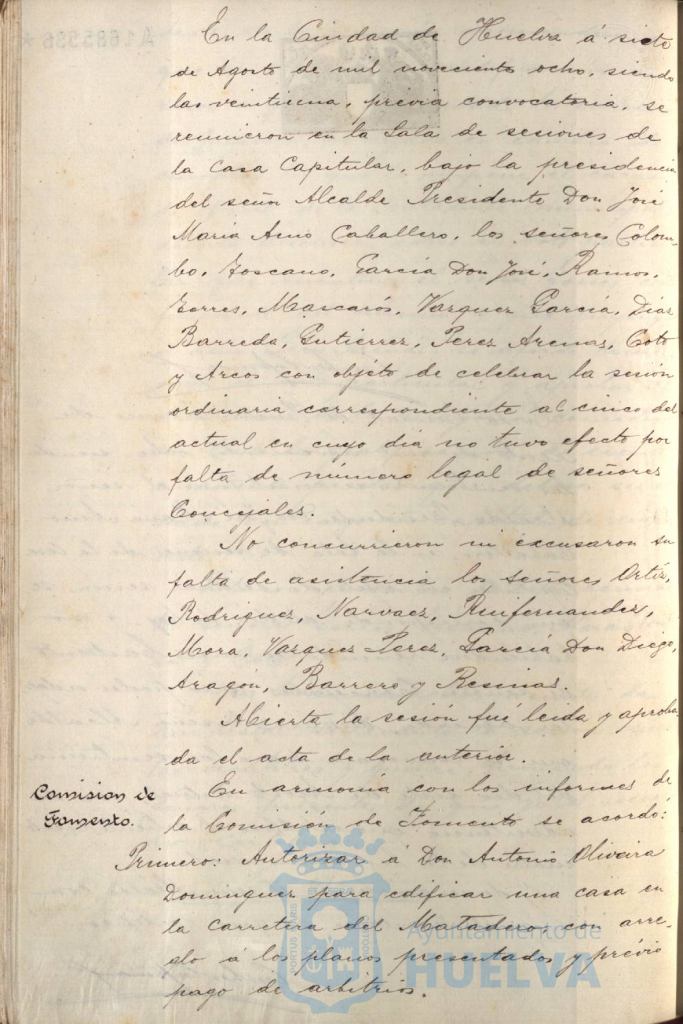 En la Ciudad de Huelva á siete
de Agosto de mil novecientos ocho, siendo
las veintiuna, prévia convocatoria, se
reunieron en la Sala de sesiones de
la Casa Capitular, bajo la presidencia
del señor Alcalde Presidente Don José
Maria Amo Caballero, los señores Colom-
bo, Toscano, García Don José, Ramos,
Torres, Mascarós, Vazquez García, Diaz
Barreda, Gutierrez, Perez Arenas, Coto
y Arcos con objeto de celebrar la sesión
ordinaria correspondiente al cinco del
actual en cuyo dia no tuvo efecto por
falta de número legal de señores
Concejales.
No concurrieron ni excusaron su
falta de asistencia los señores Ortiz,
Rodriguez, Narvaez, Ruifernandez,
Mora, Vazquez Perez, García Don Diego,
Aragón, Barrero y Resinas.
Abierta la sesión fué leida y aproba-
da el acta de la anterior.
Comision de
Fomento.
En armonía con los informes de
la Comisión de Fomento se acordó:
Primero: Autorizar á Don Antonio Oliveira
Dominguez para edificar una casa en
la carretera del Matadero, con arre-
glo á los planos presentados y prévio
pago de arbitrios.
A1685536 *
Ayuntamiento de
HUELVA